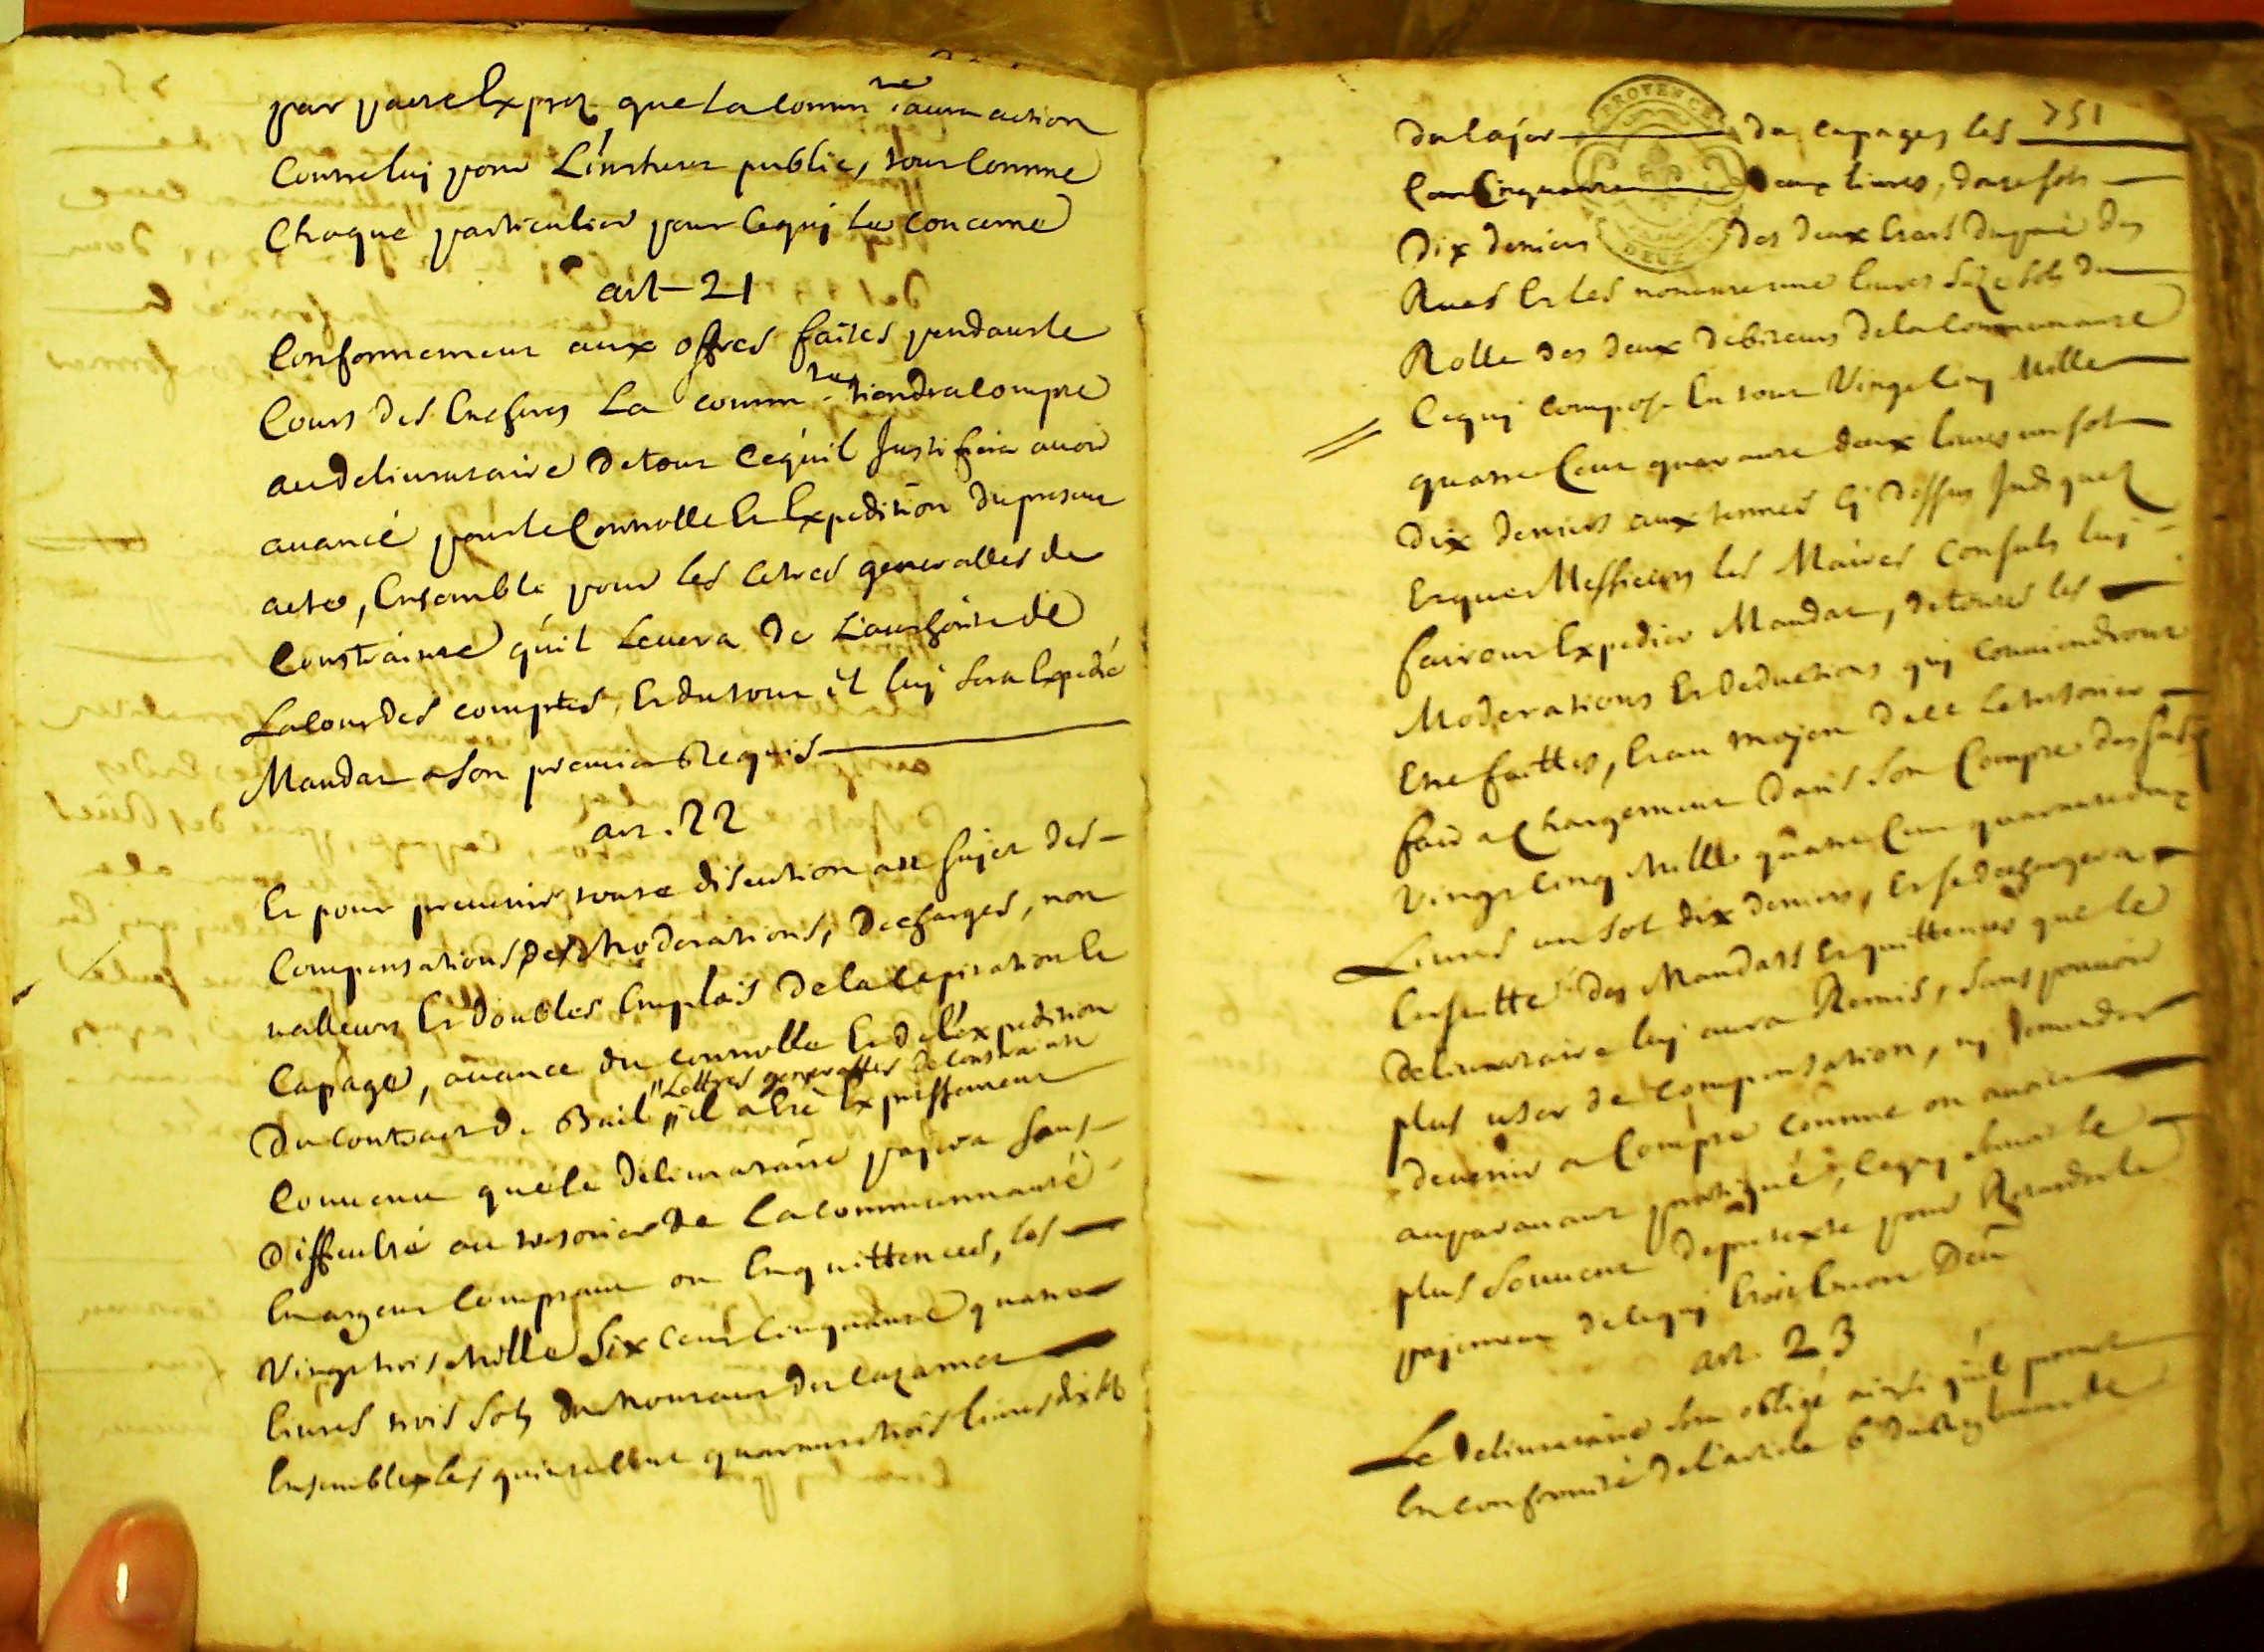 par pacte Exprez que La Comm té aura action
Contre luy pour L'interest public, tout Comme
Chaque particulier pour Cequj Le Concerne
art 21
Conformement aux offres faites pendant le
Cours des Encheres La comm té tiendra Compte
au deliurataire de tout Cequ'il Justifiera auoir
auancé pour le Controlle Et Expedition du present
acte, Ensemble pour les Letres generalles de
Constrainte qu'il Leuera de L'authorité de
La Cour des comptes, Et du tout il luj sera Expedié
Mandat a son premier Requis
art. 22
Et pour preuenir toute discution au sujet des
Compensations des Moderations, decharges, non
valleurs Et doubles Emplois de la Capitation Et
Capage, auance du controlle Et de l'expedition
"Lettres generalles de Constrainte
du Contract de Bail "il a Eté Expressement
Conuenu que le deliurataire payera sans
difficulté au tresorier de La Communauté
En argent Comptant ou En quittences, les
Vingt trois Mille Six Cent Cinquante quatre
liures trois sols du montant du Cazernet
Ensemble les quinze Cent quarante trois liures dix sols
751
PROVENCE
DEUX
du Cajer du Capages les
Cent Cinquante deux liures, douze sols
Dix deniers des deux Etats du paué des
Rues Et les nonante une liures Seize sols du
Rolle des deux debiteurs de la Communauté
Cequj compose En tout Vingt Cinq Mille
quatre Cent quarante deux liures un sol
Dix deniers aux termes Cj dessus Indiquez
Et que Messieurs les Maires Consuls luj
fairont Expedier Mandat, de toutes les
Moderations Et deductions quj Conuiendront
Etre faittes, Et au moyen de Ce Le tresorier
faira Chargement dans son Compte des susd.
Vingt Cinq Mille quatre Cent quarante deux
Liures un sol dix deniers, Et se dechargera
Ensuitte des Mandats Et quittences que le
deliurataire luj aura Remis, sans pouuoir
plus user de Compensation, nj demander
devenir a Compte comme on auoit
auparauant pratiqué, Cequj étoit le
plus souuent de pretexte pour Retarder le
payement de Cequj Etoit Encore deû
art. 23
Le deliurataire sera obligé ainsi qu'il promet
En conformité de l'article 6 du Reglement de